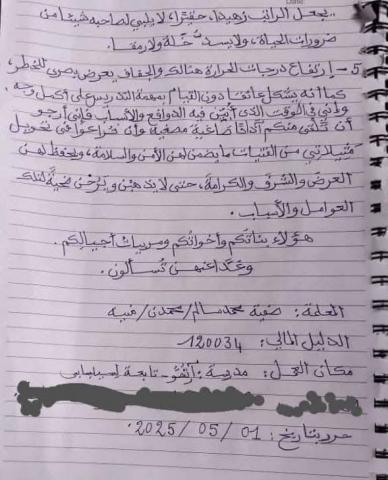 .. يجعل الراتب زهيدا، حقيرا، لا يلبي لصاحبه شيئا من
ضروريات الحياة، ولا يسد خلة ولا رمقا.
5- ارتفاع درجات الحرارة هنالك والجفاف يعرض بصري للخطر،
كما أنه يشكل عائقا دون القيام بمهمة التدريس على أكمل وجه.
وإني في الوقت الذي أبين فيه الدوافع والأسباب فإني أرجو
أن تلقى منكم آذانا صاغية مصغية وأن تراعوا في تحويل
مثيلاتي من الفتيات ما يضمن لهن الأمن والسلامة، ويحفظ لهن
العرض والشرف والكرامة، حتى لا يذهبن ويرحن ضحية لتلك
العوامل والأسباب.
هؤلاء بناتكم وأخواتكم ومربيات أجيالكم.
وغدا عنهن تسألون.
المعلمة: صفية محمد سالم/ محمدن/ فنيه
الدليل المالي: 120034
مكان العمل: مدرسة: تابعة
حرر بتاريخ: 01/ 05/ 2025.